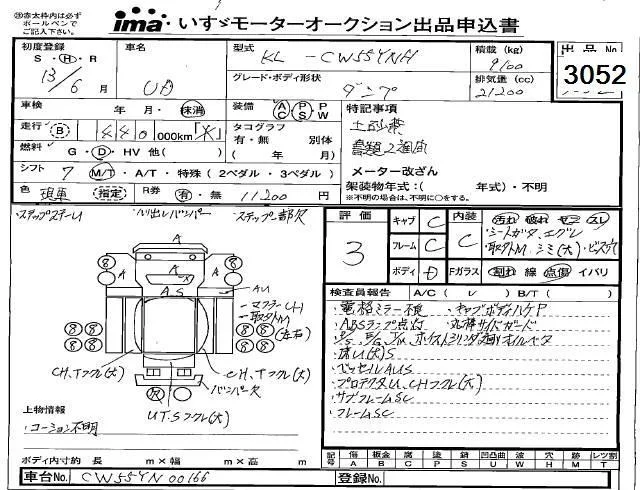 ㊟赤太枠内は必ず
ボールペンで
ご記入下さい。
ima いすゞモーターオークション出品申込書
初度登録
S・H・R
13/6 月
車名
UD
型式
KL - CW55YNH
グレード・ボディ形状
ダンプ
積載 (kg)
9100
排気量 (cc)
21200
出品No.
3052
車検 年・月・抹消
走行 B 440 000km
燃料 G・D・HV 他( )
シフト 7 M/T・A/T・特殊 (2ペダル・3ペダル)
装備 AC PS PW
タコグラフ
有・無 別体
( 年 月)
特記事項
土砂禁
書類2週間
メーター改ざん
架装物年式:( 年式)・不明
※不明の場合は、不明に○をする。
色 現車 指定 R券 有・無 11200 円
・ステップスチール ハリ出しバンパー ・ステップ部欠
評価
3
キャブ C
フレーム C
ボディ D
内装 C
汚れ 破れ コゲ スレ
・シートガタ、エグレ
・取外M シミ(大)・ビス穴
Fガラス 割れ 線 点傷 イバリ
検査員報告 A/C( レ )B/T( )
・電格ミラー不良 ・キャブボディハゲP
・ABSランプ点灯 ・丸棒サイドガード
・床U(大)S
・ベッセルAUS
・プロテクタU,CHフクレ(大)
・サブフレームSC
・フレームSC
A
8 8
A A
A
A.S
AU
・マフラーCH
・取外M
(左右)
8 8 8 8
8 8 8 8
CH、Tフクレ(大) CH、Tフクレ(大)
バンパー欠
UT.Sフクレ(大)
上物情報
・コーション不明
ボディ内寸約 長 m×幅 m×高 m
記号 傷A 鈑金B 腐C 塗P 錆S 凹凸曲U 波W 穴H 欠M ×X レツ割T
車台No. CW55YN00166
登録No.